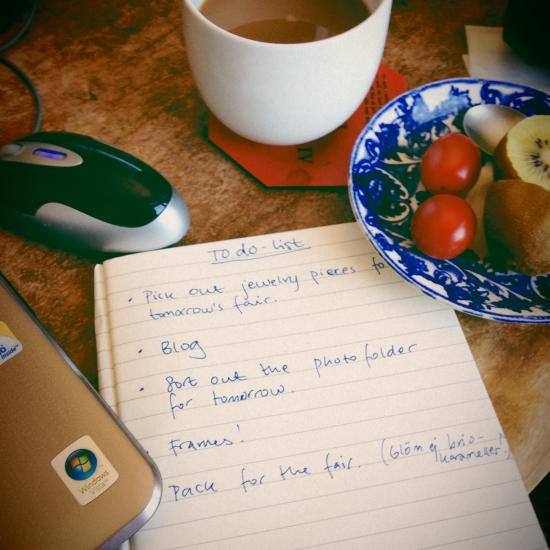 IV
To do-list
• Pick out jewelry pieces fo
tomorrow's fair.
• Blog
• Sort out the photo folder
for tomorrow.
• Frames!
Pack for the fair. (Glöm ej brio-
karameller!)
inside™
Windows
Vista™